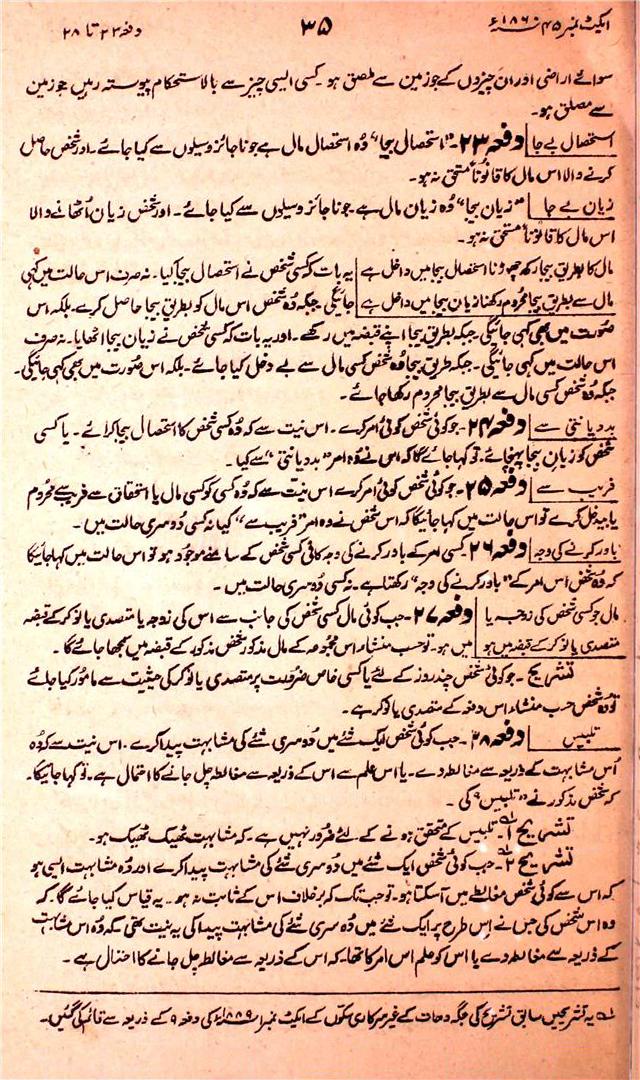 ایکٹ نمبر ۴۵ سنہ ۱۸۶۰ء
۳۵
دفعہ ۲۳ تا ۲۸
سوائے اراضی اور ان چیزوں کے جو زمین سے ملصق ہو۔ کسی ایسی چیز سے بالاستحکام پیوستہ رہیں جو زمین
سے ملصق ہو۔
استحصال بے جا دفعہ ۲۳۔ "استحصال بیجا" وُہ استحصال مال ہے جو ناجائز وسیلوں سے کیا جائے۔ اور شخص حاصل
کرنے والا اس مال کا قانوناً مستحق نہ ہو۔
زیان بے جا "زیان بیجا" وُہ زیان مال ہے جو ناجائز وسیلوں سے کیا جائے۔ اور شخص زیان اُٹھانے والا
اس مال کا قانوناً مستحق نہ ہو۔
مال کا بطریق بیجا رکھ چھوڑنا استحصال بیجا میں داخل ہے یہ بات کہ کسی شخص نے استحصال بیجا کیا۔ نہ صرف اس حالت میں کہی
مال سے بطریق بیجا محروم رکھنا زیان بیجا میں داخل ہے جائیگی جبکہ وُہ شخص اس مال کو بطریق بیجا حاصل کرے۔ بلکہ اس
صُورت میں بھی کہی جائیگی جبکہ بطریق بیجا اپنے قبضہ میں رکھے۔ اور یہ بات کہ کسی شخص نے زیان بیجا اٹھایا۔ نہ صرف
اس حالت میں کہی جائیگی۔ جبکہ بطریق بیجا وُہ شخص کسی مال سے بے دخل کیا جائے۔ بلکہ اس صُورت میں بھی کہی جائیگی۔
جبکہ وُہ شخص کسی مال سے بطریق بیجا محروم رکھا جائے۔
بددیانتی سے دفعہ ۲۴۔ جو کوئی شخص کوئی امر کرے۔ اس نیت سے کہ وُہ کسی شخص کا استحصال بیجا کرائے۔ یا کسی
شخص کو زیان بیجا پہنچائے تو کہا جائے گا کہ اس نے وُہ امر "بددیانتی" سے کیا۔
فریب سے دفعہ ۲۵۔ جو کوئی شخص کوئی امر کرے اس نیت سے کہ وُہ کسی کو کسی مال یا استحقاق سے فریب سے محروم
یا بیدخل کرے تو اس حالت میں کہا جائیگا کہ اس شخص نے وہ امر "فریب سے" کیا نہ کسی دُوسری حالت میں۔
باور کرنے کی وجہ دفعہ ۲۶۔ کسی امر کے باور کرنے کی وجہ کافی کسی شخص کے سامنے موجود ہو تو اس حالت میں کہا جائیگا
کہ وُہ شخص اس امر کے "باور کرنے کی وجہ" رکھتا ہے۔ نہ کسی دُوسری حالت میں۔
مال جو کسی شخص کی زوجہ یا دفعہ ۲۷۔ جب کوئی مال کسی شخص کی جانب سے اس کی زوجہ یا متصدی یا نوکر کے قبضہ
متصدی یا نوکر کے قبضہ میں ہو میں ہو۔ تو حسب منشاء اس مجموعہ کے مال مذکور شخص مذکور کے قبضہ میں سمجھا جائے گا۔
تشریح ۔ جو کوئی شخص چند روز کے لئے یا کسی خاص ضرورت پر متصدی یا نوکر کی حیثیت سے مامور کیا جائے
تو وُہ شخص حسب منشاء اس دفعہ کے متصدی یا نوکر ہے۔
تلبیس دفعہ ۲۸۔ جب کوئی شخص ایک شئے میں دُوسری شئے کی مشابہت پیدا کرے۔ اس نیت سے کہ وُہ
اُس مشابہت کے ذریعہ سے مغالطہ دے۔ یا اس علم سے اس کے ذریعہ سے مغالطہ چل جانے کا احتمال ہے۔ تو کہا جائیگا۔
کہ شخص مذکور نے "تلبیس" کی۔
تشریح ۱؂۔ تلبیس کے تحقق ہونے کے لئے ضرور نہیں ہے۔ کہ مشابہت ٹھیک ٹھیک ہو۔
تشریح ۲؂۔ جب کوئی شخص ایک شئے میں دُوسری شئے کی مشابہت پیدا کرے اور وُہ مشابہت ایسی ہو
کہ اس سے کوئی شخص مغالطے میں آ سکتا ہو۔ تو جب تک کہ برخلاف اس کے ثابت نہ ہو۔ یہ قیاس کیا جائے گا۔ کہ
وہ اس شخص کی جس نے اس طرح پر ایک شئے میں دُوسری شئے کی مشابہت پیدا کی یہ نیت تھی کہ وُہ اس مشابہت
کے ذریعہ سے مغالطہ دے یا اس کو علم اس امر کا تھا۔ کہ اس کے ذریعہ سے مغالطہ چل جانے کا احتمال ہے۔
۱؂ یہ تشریحیں سابق تشریح کی جگہ دھات کے غیر سرکاری سکّوں کے ایکٹ نمبر ۱ سنہ ۱۸۸۹ء کی دفعہ ۹ کے ذریعہ سے قائم کی گئیں۔